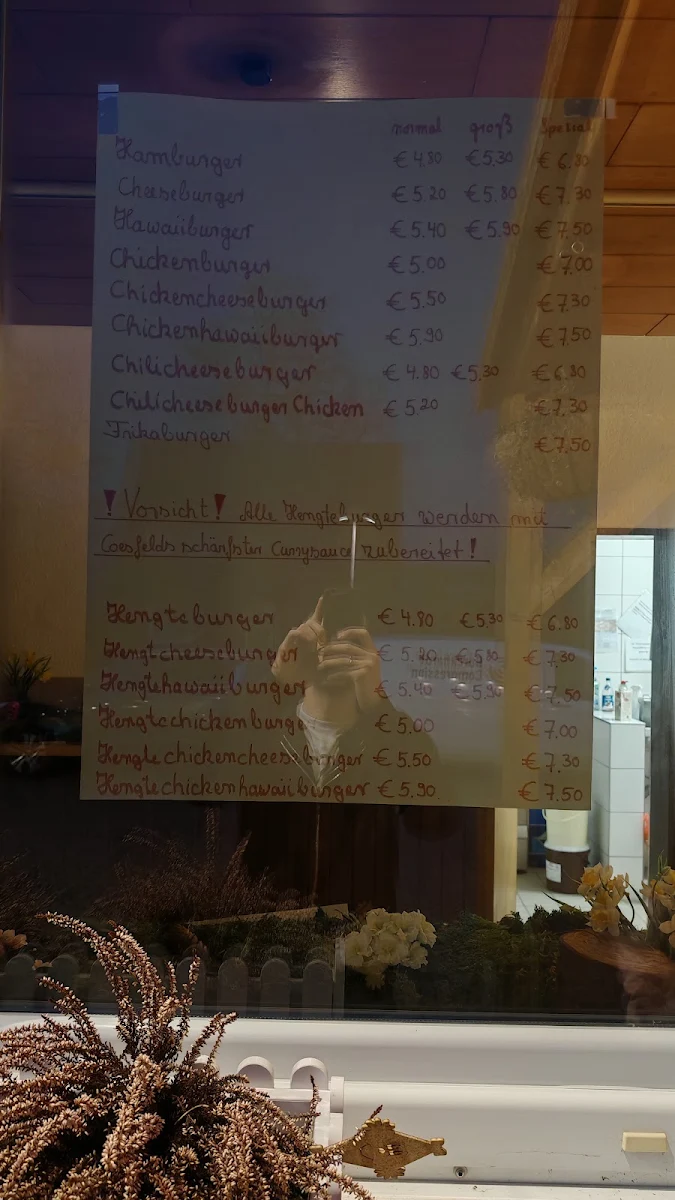 normal groß Spezial
Hamburger € 4.80 € 5.30 € 6.80
Cheeseburger € 5.20 € 5.80 € 7.30
Hawaiiburger € 5.40 € 5.90 € 7.50
Chickenburger € 5.00 € 7.00
Chickencheeseburger € 5.50 € 7.30
Chickenhawaiiburger € 5.90 € 7.50
Chilicheeseburger € 4.80 € 5.30 € 6.80
Chilicheeseburger Chicken € 5.20 € 7.30
Frikaburger € 7.50
! Vorsicht! Alle Hengteburger werden mit
Coesfelds schärfster Currysauce zubereitet!
Hengteburger € 4.80 € 5.30 € 6.80
Hengtcheeseburger € 5.20 € 5.80 € 7.30
Hengtehawaiiburger € 5.40 € 5.90 € 7.50
Hengtechickenburger € 5.00 € 7.00
Hengtechickencheeseburger € 5.50 € 7.30
Hengtechickenhawaiiburger € 5.90 € 7.50